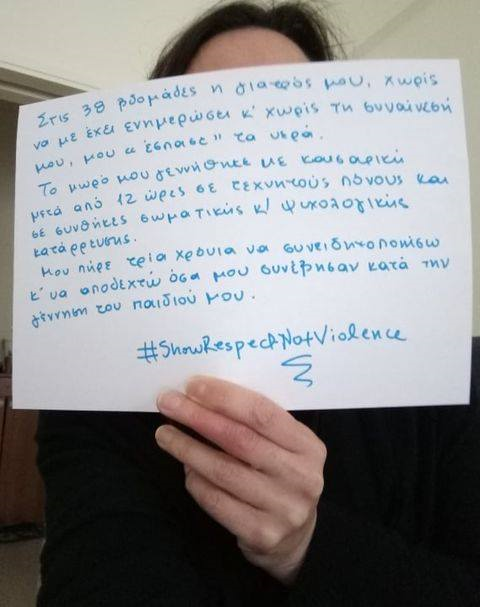 Στις 38 βδομάδες η γιατρός μου, χωρίς
να με έχει ενημερώσει κ' χωρίς τη συναίνεσή
μου, μου "έσπασε" τα νερά.
Το μωρό μου γεννήθηκε με καισαρική
μετά από 12 ώρες σε τεχνητούς πόνους και
σε συνθήκες σωματικής κ' ψυχολογικής
κατάρρευσης.
Μου πήρε τρία χρόνια να συνειδητοποιήσω
κ' να αποδεχτώ όσα μου συνέβησαν κατά την
γέννηση του παιδιού μου.
#ShowRespectNotViolence